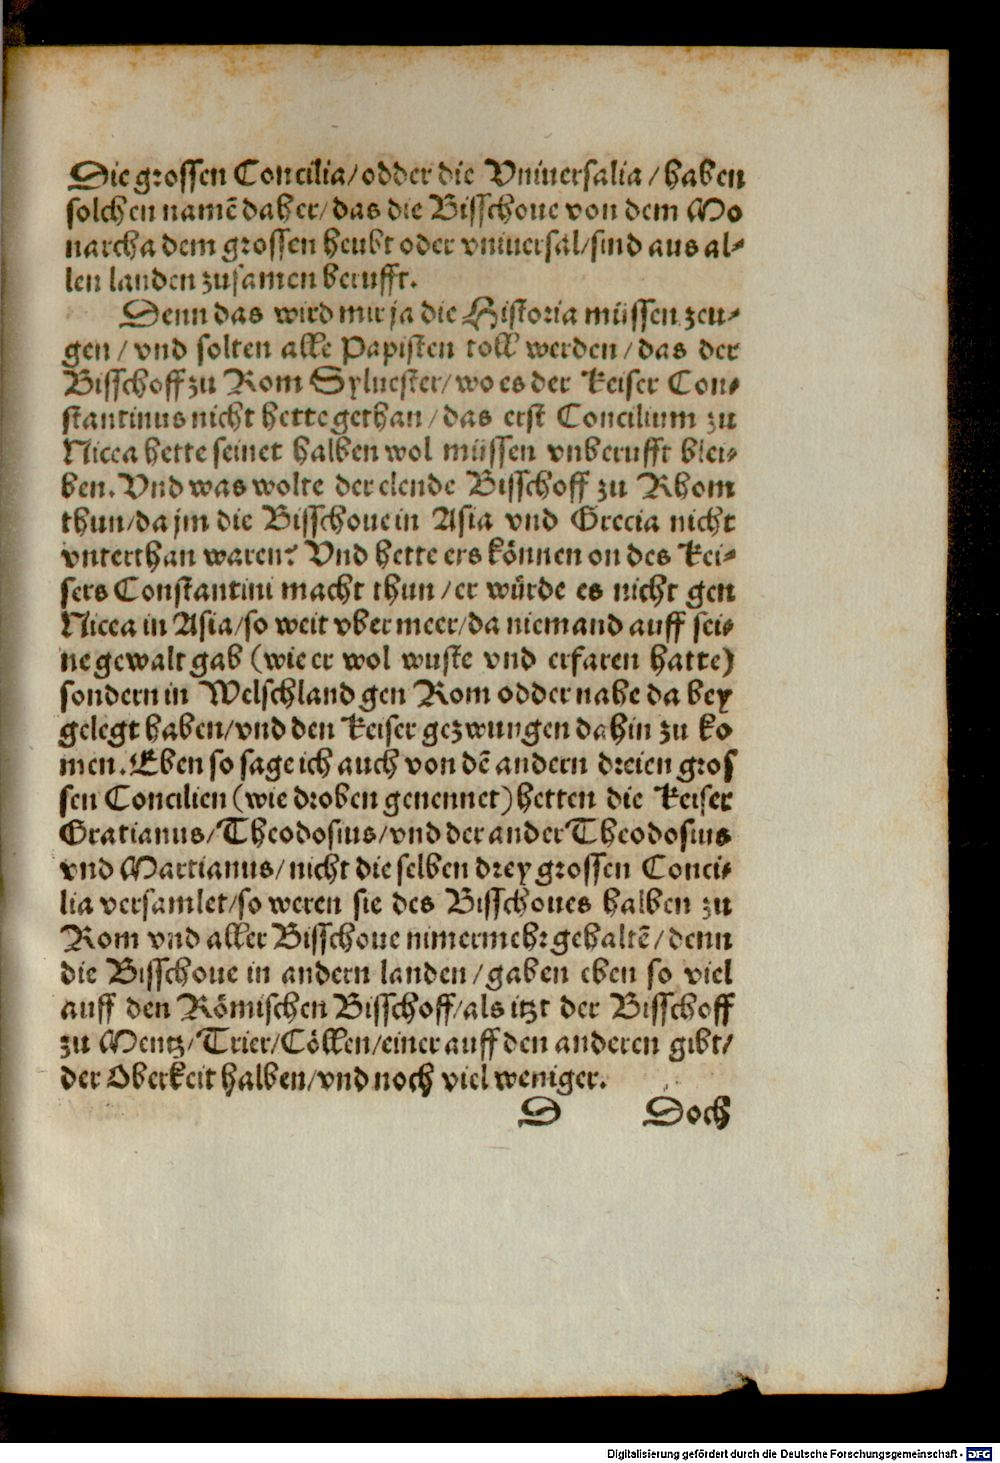 Die grossen Concilia/odder die Vniuersalia/haben
solchen namẽ daher/das die Bisschoue von dem Mo
narcha dem grossen heubt oder vniuersal/sind aus al-
len landen zusamen berufft.
Denn das wird mir ja die Historia müssen zeu-
gen/vnd solten alle Papisten toll werden/das der
Bisschoff zu Rom Syluester/wo es der Keiser Con-
stantinus nicht hette gethan/das erst Concilium zu
Nicea hette seinet halben wol müssen vnberufft blei-
ben. Vnd was wolte der elende Bisschoff zu Rhom
thun/da jm die Bisschoue in Asia vnd Grecia nicht
vnterthan waren? Vnd hette ers können on des Kei-
sers Constantini macht thun/er würde es nicht gen
Nicea in Asia/so weit vber meer/da niemand auff sei-
ne gewalt gab (wie er wol wuste vnd erfaren hatte)
sondern in Welschland gen Rom odder nahe da bey
gelegt haben/vnd den Keiser gezwungen dahin zu ko
men. Eben so sage ich auch von dẽ andern dreien gros
sen Concilien (wie droben genennet) hetten die Keiser
Gratianus/Theodosius/vnd der ander Theodosius
vnd Martianus/nicht die selben drey grossen Conci-
lia versamlet/so weren sie des Bisschoues halben zu
Rom vnd aller Bisschoue nimermehr gehaltẽ/denn
die Bisschoue in andern landen/gaben eben so viel
auff den Römischen Bisschoff/als itzt der Bisschoff
zu Mentz/Trier/Cöllen/einer auff den anderen gibt/
der Oberkeit halben/vnd noch viel weniger.
D Doch
Digitalisierung gefördert durch die Deutsche Forschungsgemeinschaft - DFG